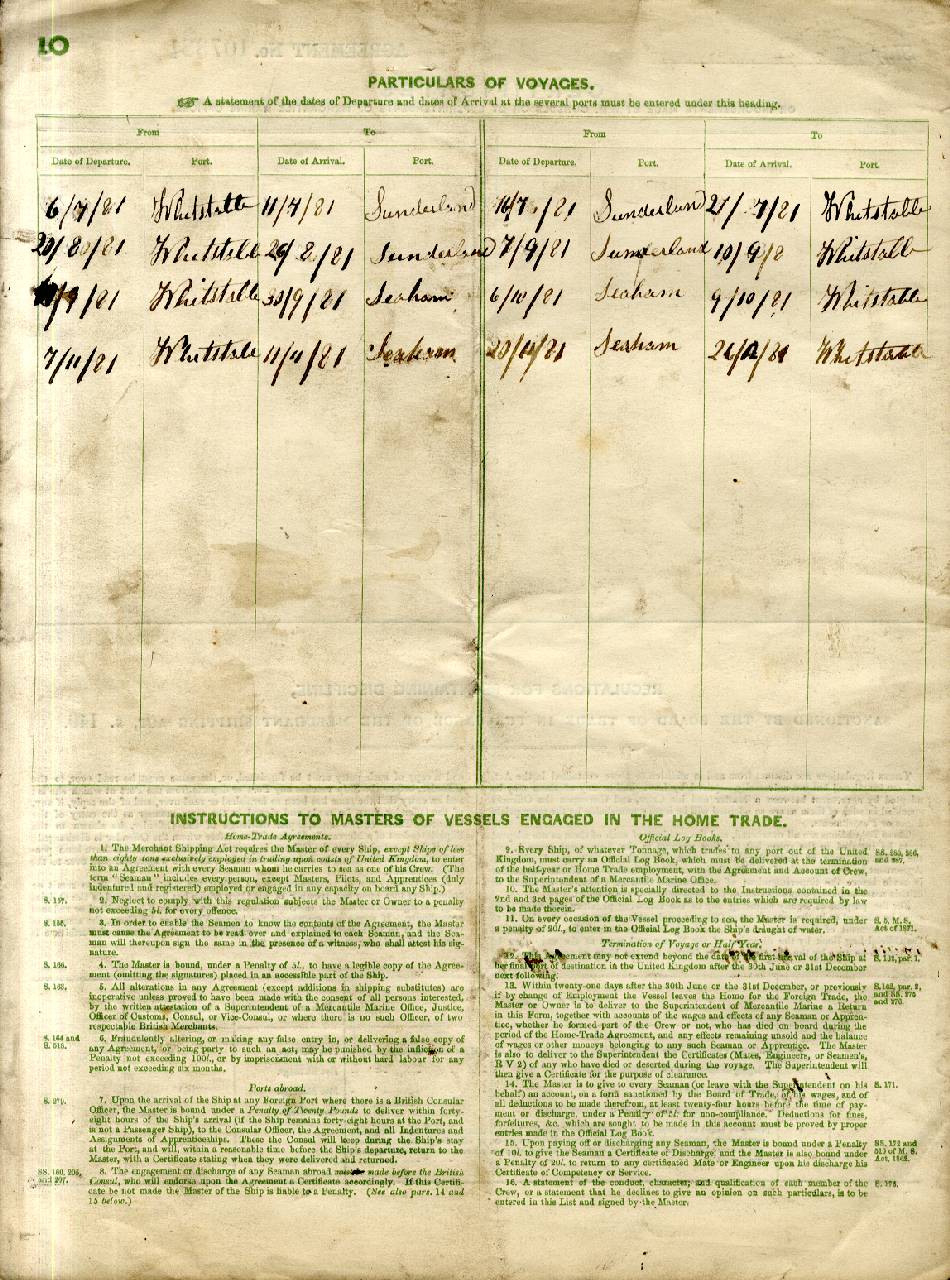 10
PARTICULARS OF VOYAGES.
A statement of the dates of Departure and dates of Arrival at the several ports must be entered under this heading.
From To From To
Date of Departure. Port. Date of Arrival. Port. Date of Departure. Port. Date of Arrival. Port.
6/7/81 Whitstable 11/7/81 Sunderland /81 Sunderland 21/7/81 Whitstable
Whitstable 29/8/81 Sunderland 7/9/81 Sunderland 10/9/8 Whitstable
/9/81 Whitstable 30/9/81 Seaham 6/10/81 Seaham 9/10/81 Whitstable
7/11/81 Whitstable 11/11/81 Seaham 20/11/81 Seaham /81 Whitstable
INSTRUCTIONS TO MASTERS OF VESSELS ENGAGED IN THE HOME TRADE.
Home-Trade Agreements.
1. The Merchant Shipping Act requires the Master of every Ship, except Ships of less
than eighty tons exclusively employed in trading upon coasts of United Kingdom, to enter
into an Agreement with every Seaman whom he carries to sea as one of his Crew. (The
term "Seaman" includes every person, except Masters, Pilots, and Apprentices (duly
indentured and registered) employed or engaged in any capacity on board any Ship.)
S. 157. 2. Neglect to comply with this regulation subjects the Master or Owner to a penalty
not exceeding 5l. for every offence.
S. 155. 3. In order to enable the Seamen to know the contents of the Agreement, the Master
must cause the Agreement to be read over and explained to each Seaman, and the Sea-
man will thereupon sign the same in the presence of a witness, who shall attest his sig-
nature.
S. 166. 4. The Master is bound, under a Penalty of 5l., to have a legible copy of the Agree-
ment (omitting the signatures) placed in an accessible part of the Ship.
S. 163. 5. All alterations in any Agreement (except additions in shipping substitutes) are
inoperative unless proved to have been made with the consent of all persons interested,
by the written attestation of a Superintendent of a Mercantile Marine Office, Justice,
Officer of Customs, Consul, or Vice-Consul, or where there is no such Officer, of two
respectable British Merchants.
S. 164 and 6. Fraudulently altering, or making any false entry in, or delivering a false copy of
any Agreement, or being party to such an act, may be punished by the infliction of a
Penalty not exceeding 100l., or by imprisonment with or without hard labour for any
period not exceeding six months.
Ports abroad.
7. Upon the arrival of the Ship at any Foreign Port where there is a British Consular
Officer, the Master is bound under a Penalty of Twenty Pounds to deliver within forty-
eight hours of the Ship's arrival (if the Ship remains forty-eight hours at the Port, and
is not a Passenger Ship), to the Consular Officer, the Agreement, and all Indentures and
Assignments of Apprenticeships. These the Consul will keep during the Ship's stay
at the Port, and will, within a reasonable time before the Ship's departure, return to the
Master, with a Certificate stating when they were delivered and returned.
8. The engagement or discharge of any Seaman abroad must be made before the British
Consul, who will endorse upon the Agreement a Certificate accordingly. If this Certifi-
cate be not made the Master of the Ship is liable to a Penalty. (See also pars. 14 and
15 below.)
Official Log Books.
9. Every Ship, of whatever Tonnage, which trades to any port out of the United
Kingdom, must carry an Official Log Book, which must be delivered at the termination
of the half-year or Home Trade employment, with the Agreement and Account of Crew,
to the Superintendent of a Mercantile Marine Office.
10. The Master's attention is specially directed to the Instructions contained in the
2nd and 3rd pages of the Official Log Book as to the entries which are required by law
to be made therein.
11. On every occasion of the Vessel proceeding to sea, the Master is required, under
a penalty of 20l., to enter in the Official Log Book the Ship's draught of water. S. 5, M. S. Act of 1871.
Termination of Voyage or Half Year.
12. This Agreement may not extend beyond the date of the first arrival of the Ship at
her final port of destination in the United Kingdom after the 30th June or 31st December
next following.
13. Within twenty-one days after the 30th June or the 31st December, or previously
if by change of Employment the Vessel leaves the Home for the Foreign Trade, the
Master or Owner is to deliver to the Superintendent of Mercantile Marine a Return
in this Form, together with accounts of the wages and effects of any Seaman or Appren-
tice, whether he formed part of the Crew or not, who has died on board during the
period of the Home-Trade Agreement, and any effects remaining unsold and the balance
of wages or other moneys belonging to any such Seaman or Apprentice. The Master
is also to deliver to the Superintendent the Certificates (Mates, Engineers, or Seamen's,
R V 2) of any who have died or deserted during the voyage. The Superintendent will
then give a Certificate for the purpose of clearance.
14. The Master is to give to every Seaman (or leave with the Superintendent on his S. 171.
behalf) an account, on a form sanctioned by the Board of Trade, of his wages, and of
all deductions to be made therefrom, at least twenty-four hours before the time of pay-
ment or discharge, under a Penalty of 5l. for non-compliance. Deductions for fines,
forfeitures, &c. which are sought to be made in this account must be proved by proper
entries made in the Official Log Book.
15. Upon paying off or discharging any Seaman, the Master is bound under a Penalty
of 10l. to give the Seaman a Certificate of Discharge, and the Master is also bound under
a Penalty of 20l. to return to any certificated Mate or Engineer upon his discharge his
Certificate of Competency or Service.
16. A statement of the conduct, character, and qualification of each member of the
Crew, or a statement that he declines to give an opinion on such particulars, is to be
entered in this List and signed by the Master.